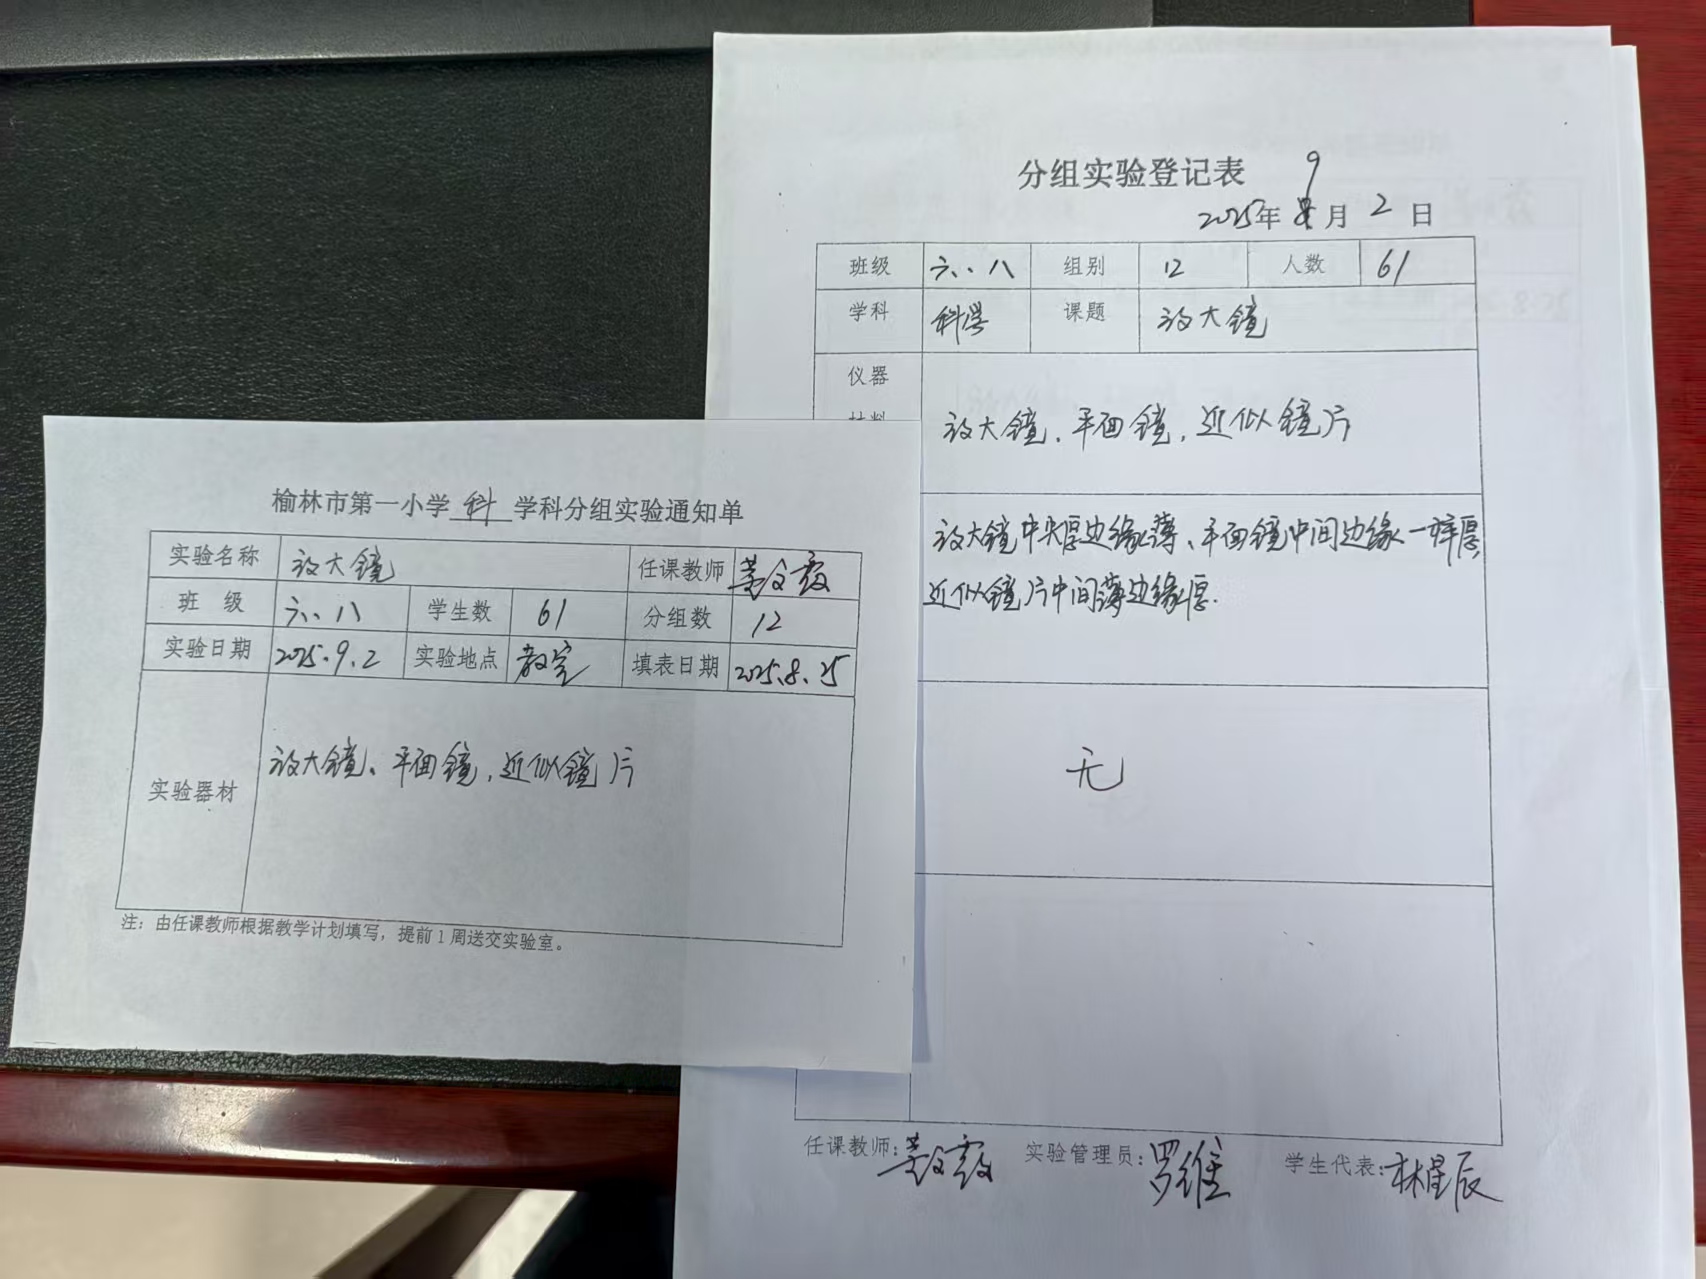 榆林市第一小学 科 学科分组实验通知单
实验名称 放大镜 任课教师
班 级 六、八 学生数 61 分组数 12
实验日期 2025.9.2 实验地点 教室 填表日期 2025.8.25
实验器材 放大镜、平面镜,近似镜片
注:由任课教师根据教学计划填写,提前1周送交实验室。
分组实验登记表
2025年 9 月 2 日
班级 六、八 组别 12 人数 61
学科 科学 课题 放大镜
仪器
材料
放大镜、平面镜,近似镜片
放大镜中央厚边缘薄、平面镜中间边缘一样厚,
近似镜片中间薄边缘厚.
无
任课教师: 实验管理员:罗维 学生代表:林星辰